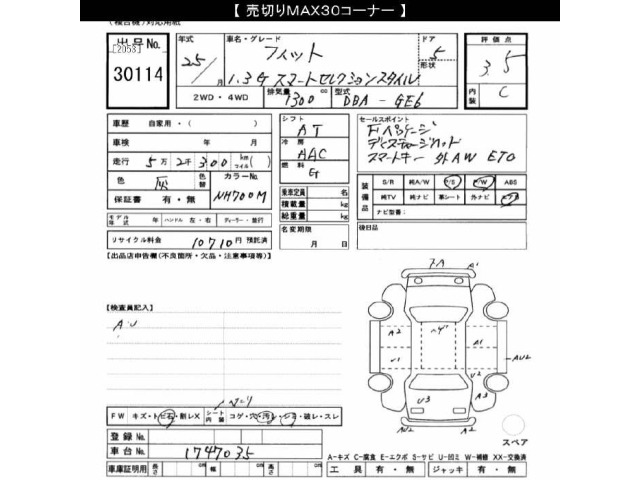 【 売切りMAX30コーナー 】
(検合機)対応用紙
出品No. [2058] 30114
年式 25 年 月
車名・グレード フィット 1.3G スマートセレクションスタイル
ドア 5 形状
評価点 3.5
内装 C
2WD・4WD
排気量 1300 cc
型式 DBA - GE6
車歴 自家用・( )
車検 年 月
走行 5万 2千 300 km マイル ( )
色 灰 色替
カラーNo. NH700M
保証書 有・無
シフト AT
冷房 AAC
燃料
乗車定員 名
積載量 kg
総重量 kg
名変期限 月 日
セールスポイント
Fパッケージ
スマートキー 外AW ETC
装備品 S/R 純A/W P/S P/W ABS
純TV 純ナビ 革シート 外ナビ エアB
ナビ型番:
後日品
モデル年式 年 ハンドル 左・右 ディーラー・並行
リサイクル料金 10710 円 預託済
【出品店申告欄(不良箇所・欠品・注意事項等)】
【検査員記入】
A・U
FA A1
A2 A1
U1 U2 AU2
U3 A3
AU2 A2
FW キズ・トビ石・割レX
シート内装 コゲ・穴・汚レ・シミ・破レ・スレ
スペア
登録No.
車台No. 1747035
A-キズ C-腐食 E-エクボ S-サビ U-凹ミ W-補修 XX-交換済
車庫証明用 長さ cm 幅 cm 高さ cm
工具 有・無 ジャッキ 有・無